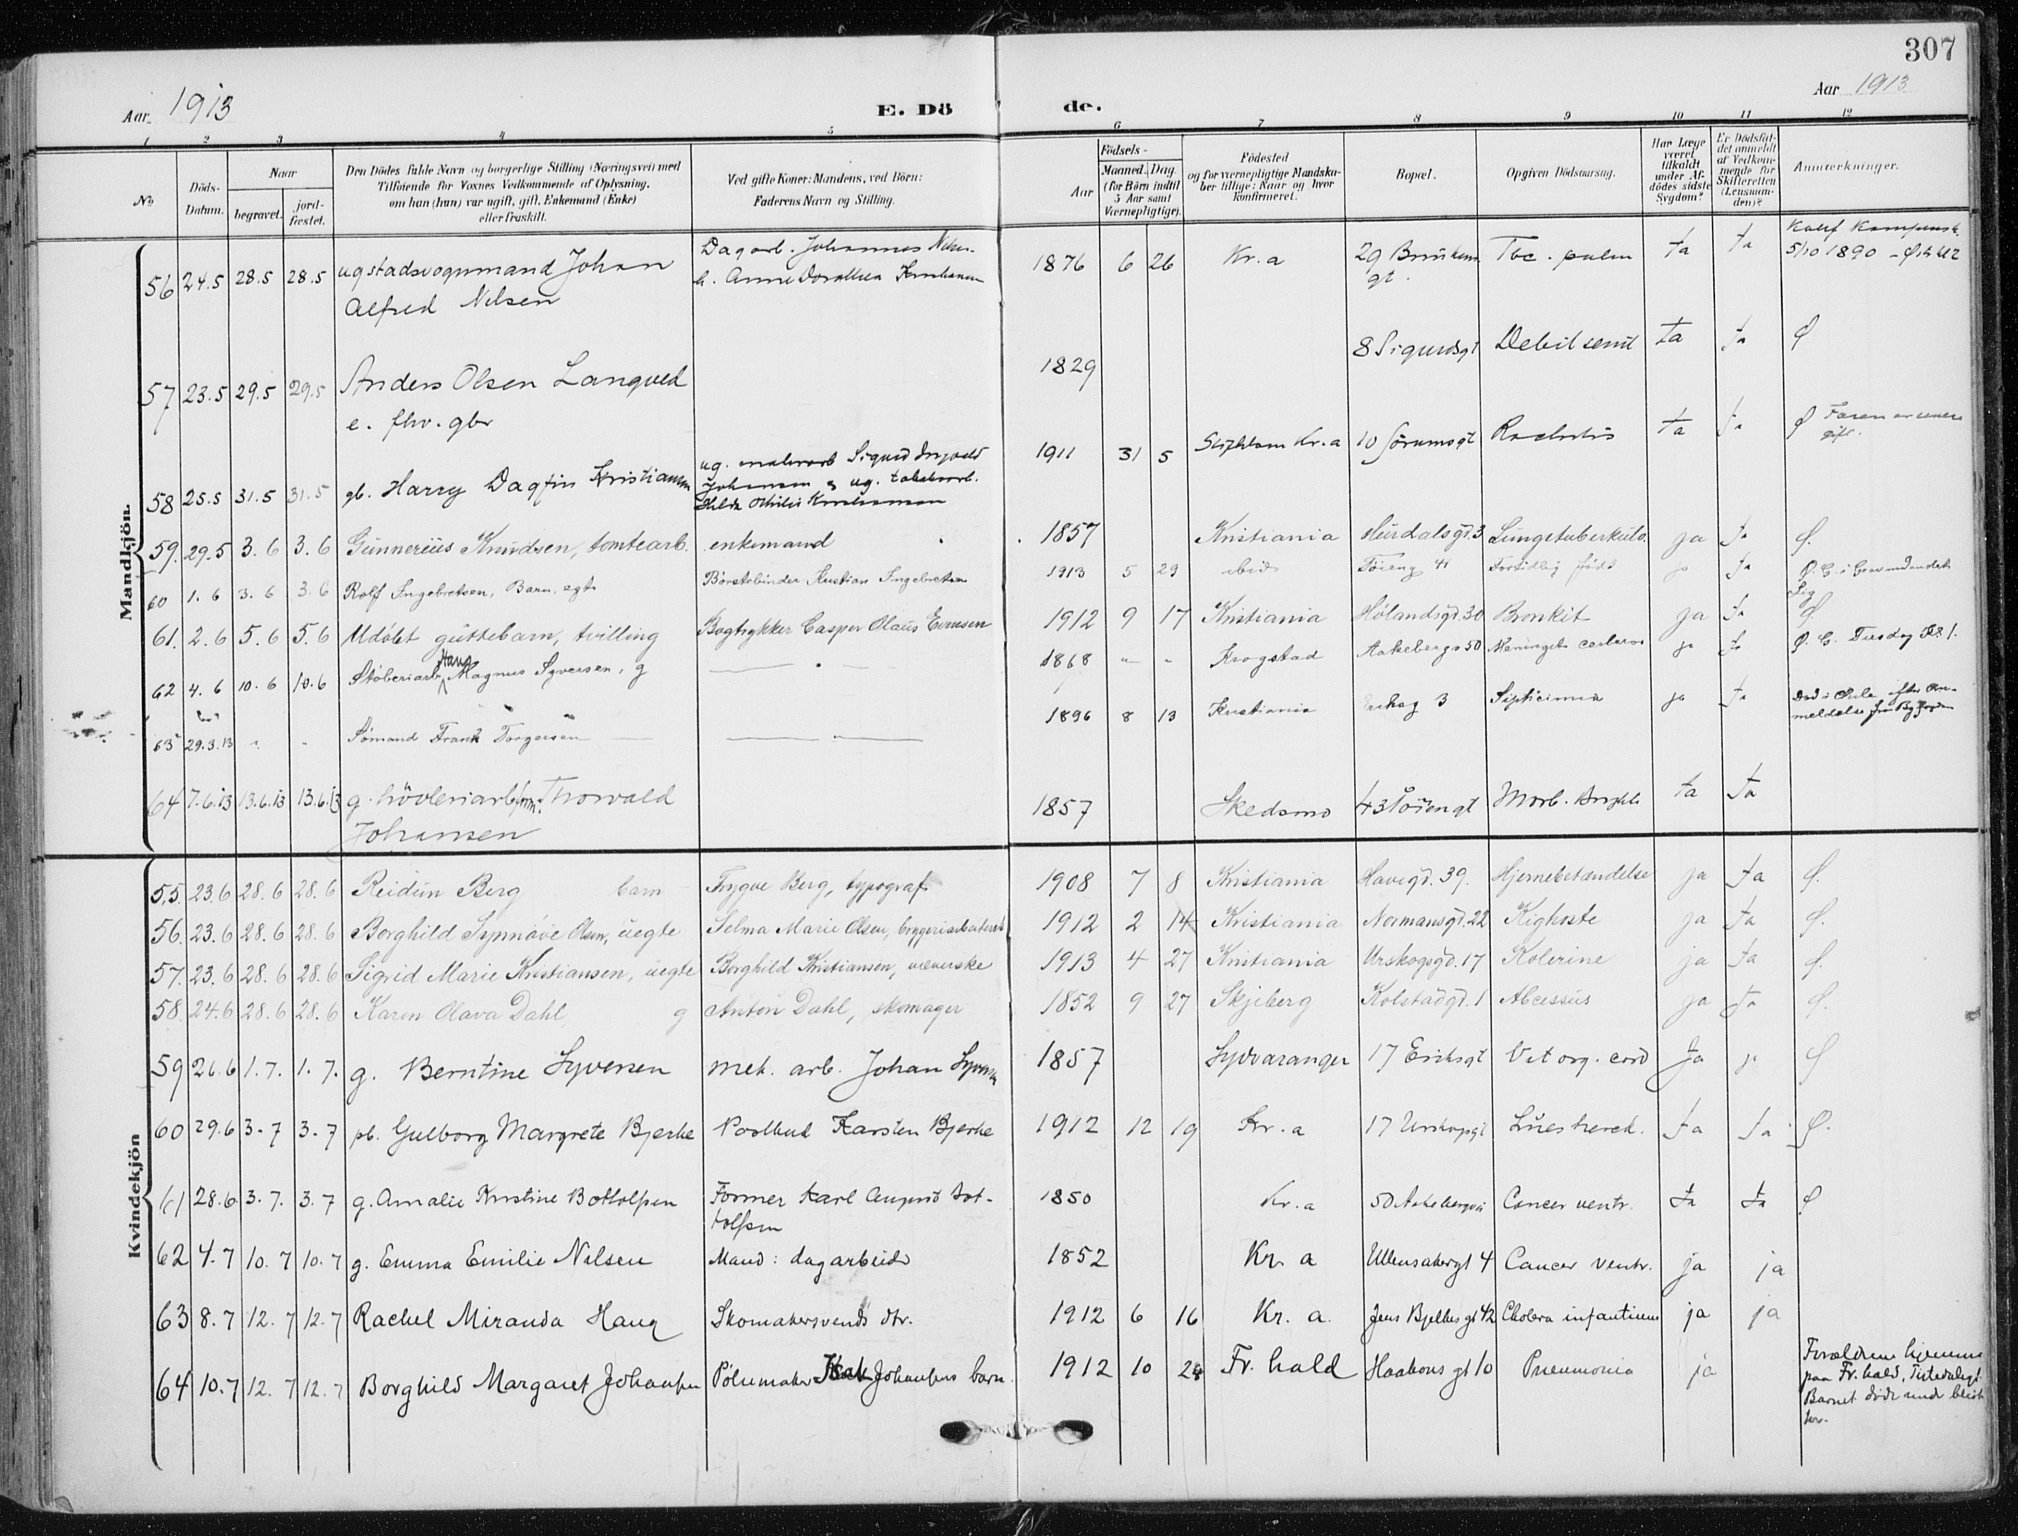 307
Aar 1913
E. Dö
de.
Aar 1913
1 2 3 4 5 6 7 8 9 10 11 12
No
Döds-Datum.
Naar
begravet.
jordfæstet.
Den Dödes fulde Navn og borgerlige Stilling (Næringsvei) med
Tilföiende for Voxnes Vedkommende af Oplysning,
om han (hun) var ugift, gift, Enkemand (Enke)
eller fraskilt.
Ved gifte Koner: Mandens, ved Börn:
Faderens Navn og Stilling.
Födsels-
Aar
Maaned. Dag
(for Börn indtil
5 Aar samt
Værnepligtige).
Födested
og for værnepligtige Mandskaber tillige: Naar og hvor
konfirmeret.
Bopæl.
Opgiven Dödsaarsag.
Har Læge
været
tilkaldt
under Afdödes sidste
Sygdom?
Er Dödsfaldet anmeldt
af Vedkommende for
Skifteretten
(Lensmanden)?
Anmerkninger.
Mandkjön.
56 24.5 28.5 28.5 ug stadsvognmand Johan
Alfred Nilsen
Dagarb. Johannes
1876 6 26 Kr.a 29
gt. Tbc. pulm ja ja
5/10 1890
57 23.5 29.5 29.5 Anders Olsen Langved
e. fhv. gbr
1829 8 Sigurdsgt Debil senil ja ja Ø
58 25.5 31.5 31.5 gb. Harry Dagfin Kristiansen
ug. malerarb Sigurd
Johansen & ug.
1911 31 5 Kr.a 10 Sørumsgt ja ja Ø Faren er senere
gift.
59. 29.5 3.6 3.6 Gunnerius Knudsen, tomtearb. enkemand 1857 Kristiania Hurdalsgd. 3 Lungetuberkulo. ja ja Ø.
60 1.6 3.6 3.6 Rolf Ingebretsen, Barn, egte Børstebinder Kristian Ingebretsen 1913 5 29 ibid Tøieng 41 Fortidlig født ja ja
61. 2.6 5.6 5.6 Udøbt guttebarn, tvilling Bogtrykker Casper Olaus Evensen 1912 9 17 Kristiania Hølandsgd. 30 Bronkit ja ja Ø.
62 4.6 10.6 10.6 Støberiarb. Hans Magnus Syversen, g 1868 " " Krogstad Aakebergv 50 ja ja
63 29.3.13 " " Sømand Frank Torgersen 1896 8 13 Kristiania 3 Septicimia ja ja
64 7.6.13 13.6.13 13.6.13 g. høvleriarb. Thorvald
Johansen
1857 Skedsmo 43 Tøiengt Morb. Brightii ja ja
Kvindekjön
55. 23.6 28.6 28.6 Reidun Berg barn Trygve Berg, typograf 1908 7 8 Kristiania Havegd. 39. Hjernebetændelse ja ja Ø.
56. 23.6 28.6 28.6 Borghild Synnøve Olsen, uegte Selma Marie Olsen, bryggeriarbeiderske 1912 2 14 Kristiania Normansgd. 22 Kighoste ja ja Ø.
57. 23.6 28.6 28.6 Sigrid Marie Kristiansen, uegte Borghild Kristiansen, væverske 1913 4 27 Kristiania Urskogsgd. 17 Kolerine ja ja Ø.
58. 24.6 28.6 28.6 Karen Olava Dahl g Anton Dahl, skomager 1852 9 27 Skjeberg Kolstadgd. 1 Abcessus ja ja Ø.
59 26.6 1.7. 1.7. g. Berntine Syversen met. arb. Johan Syversen 1857 Sydvaranger 17 Eriksgt Vit org. cord ja ja Ø
60 29.6 3.7 3.7 pb. Gulborg Margrete Bjerke Postbud Karsten Bjerke 1912 12 19 Kr.a 17 Urskogsgt Lues hered. ja ja Ø.
61 28.6 3.7. 3.7 g. Amalie Kristine Bottolfsen Former Karl August Bottolfsen
1850 Kr.a 50 Aakebergvei Cancer ventr. ja ja Ø
62 4.7 10.7 10.7 g. Emma Emilie Nilsen Mand: dagarbeider 1852 Kr.a Ullensakergt 4 Cancer ventr. ja ja
63 8.7 12.7 12.7 Rachel Miranda Haug Skomakersvends dtr. 1912 6 16 Kr.a. Jens Bjelkes gt 42 Cholera infantium ja ja
64 10.7 12.7 12.7 Borghild Margaret Johansen Pølsemaker Isak Johansens barn. 1912 10 28 Fr. hald Haakons gt 10 Pneumonia ja Forældrene hjemme
paa Fr. hald, Tistedalsgt.
Barnet døde under besøk
her.